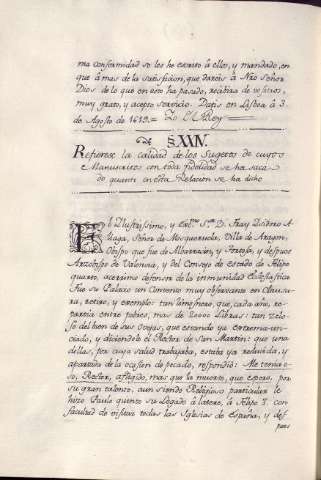 ma conformidad se los he escrito à ellos, y mandado, en
que à mas de la satisfacion, que dareis à Nro Señor
Dios de lo que en esto ha pasado, recibirè de vosotros,
muy grato, y acepto servicio. Datis en Lisboa à 3.
de Agosto de 1619.= Yo El Rey
§.XXIV.
Refierese la calidad de los Sugetos de cuyos
Manuscritos con toda fidelidad se ha saca
do quanto en esta Relacion se ha dicho
El Illustrissimo, y Exc.mo S.or D. Fray Isidoro A
liaga, Señor de Mosqueruela, Villa de Aragon,
Obispo que fue de Albarracin, y Tortosa, y despues
Arzobispo de Valencia, y del Consejo de estado de Felipe
quarto, acerrimo defensor de la inmunidad Eclesiastica
Fue su Palacio un Convento muy observante en Clausu
ra, retiro, y exemplo: tan limosnero, que, cada año, re
partia entre pobres, mas de 20000 Libras: tan zelo
so del bien de sus Ovejas, que estando ya extremaun
ciado, y diciendole el Rector de San Martin: que una
de ellas, por cuya salud trabajaba, estaba ya reducida, y
apartada de la ocasion de pecado, respondiò: Me tenia
eso, Rector, afligido, mas que la muerte, que espero, por
su gran talento, aun siendo Religioso particular le
hizo Paulo quinto su Legado à latere, à Felipe 3. con
facultad de visitar todas las Iglesias de España, y des
pues